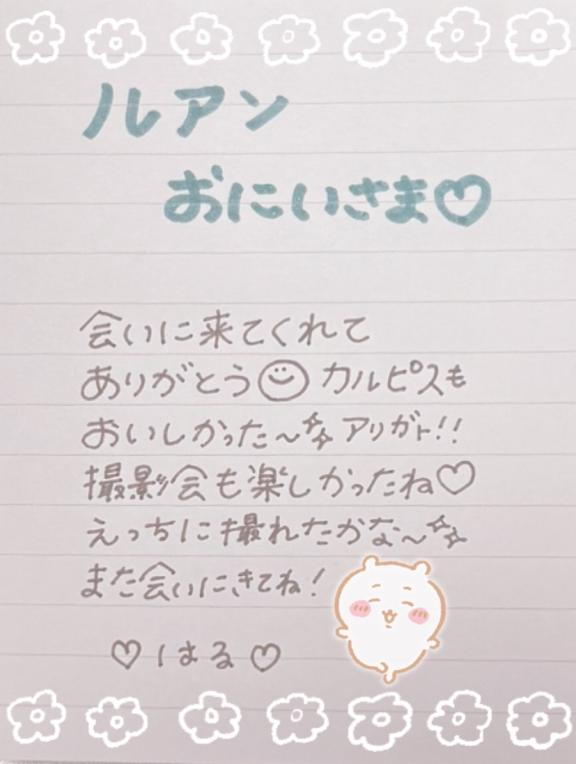 ルアン
おにいさま♡
会いに来てくれて
ありがとう☺ カルピスも
おいしかった〜✨ アリガト!!
撮影会も楽しかったね♡
えっちに撮れたかな〜✨
また会いにきてね!
♡はる♡